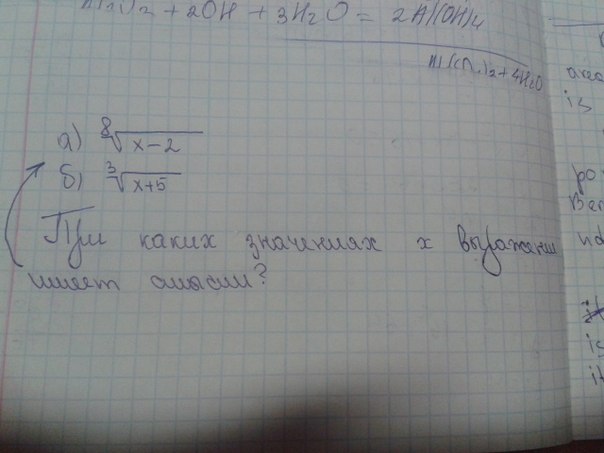 + 2OH + 3H₂O = 2Al(OH)₄
а) ⁸√x-2
б) ³√x+5
При каких значениях x выражение
имеет смысл?
is
is